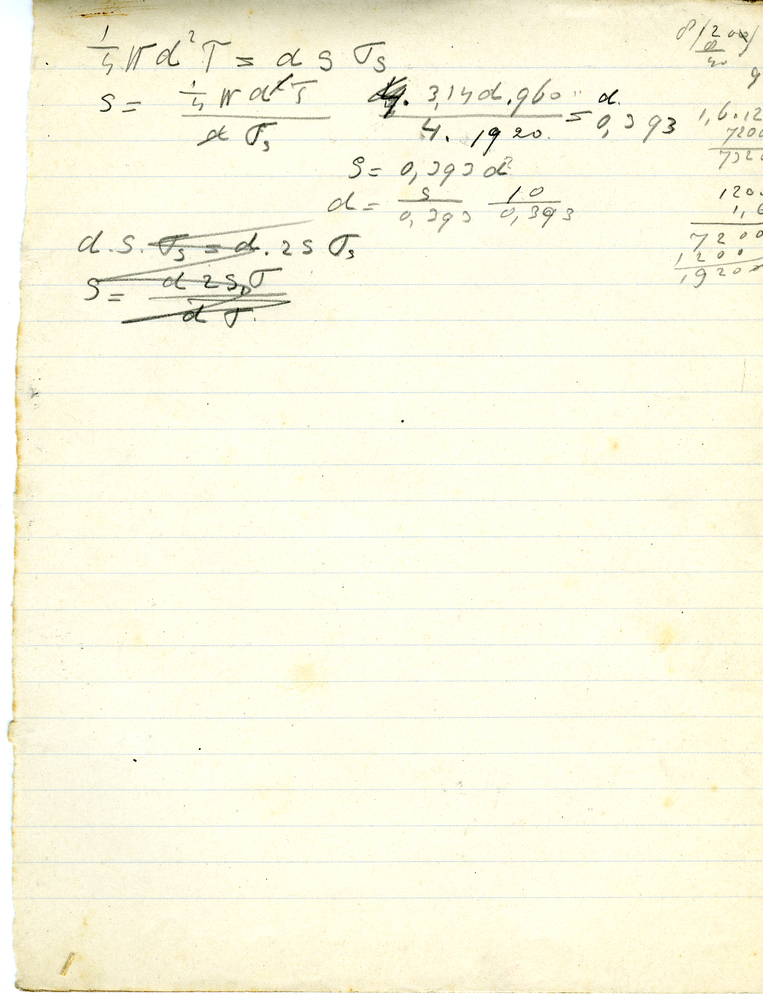 1/4 π d² T = d s σs
s = 1/4 π d² T / d σs
3,14 d . 960 / 4 . 1920 = d. 0,393
s = 0,393 d
d = s / 0,393 10 / 0,393
d . s . σs = d . 2 s σs
s = d 2 s σ / d σ
1,6 . 12
7200
7320
120
1,6
7200
1200
1920